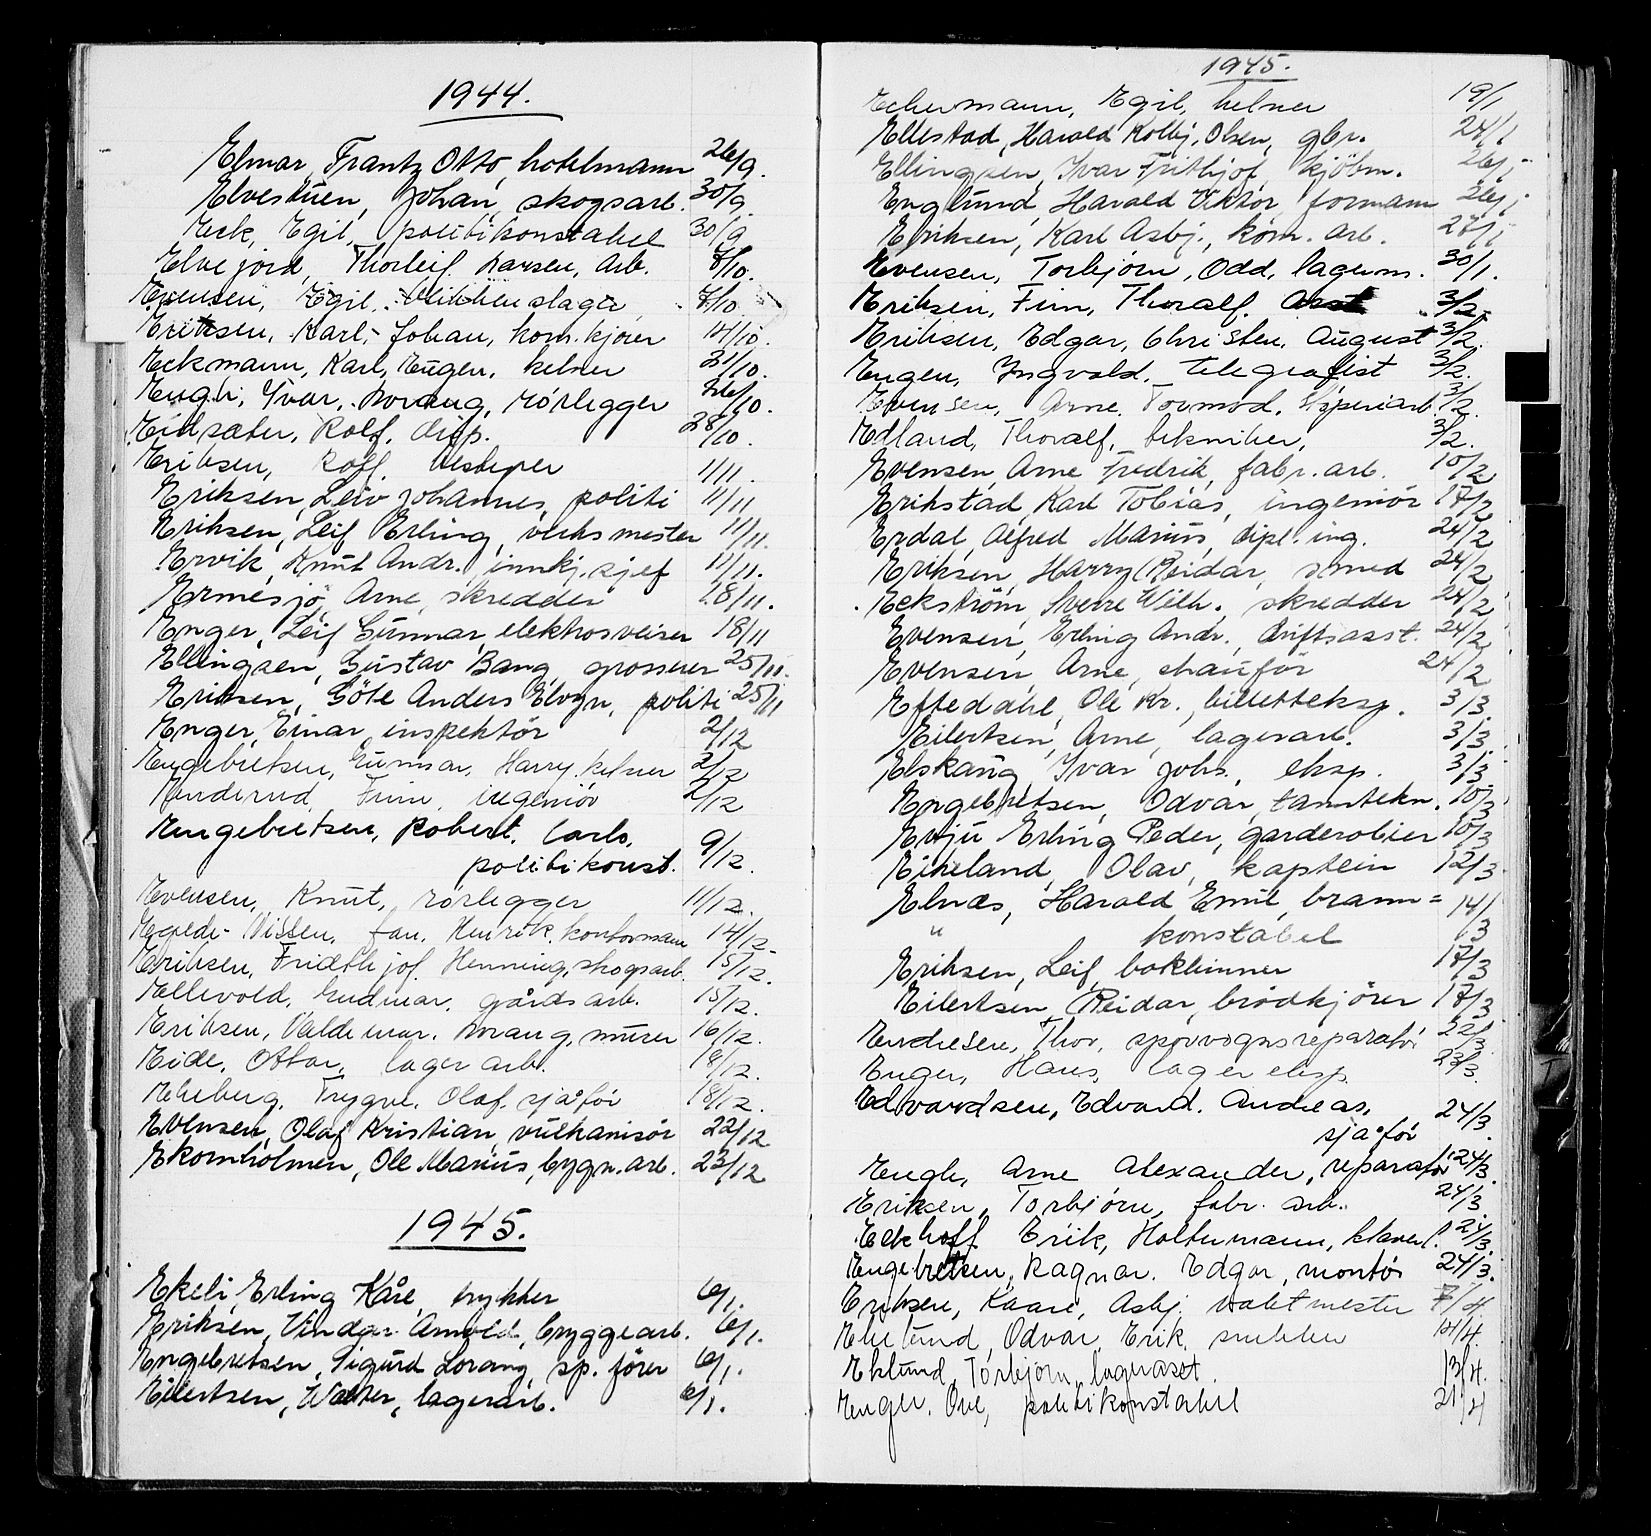 1944.
Elmar, Frantz Otto, hotelmann 26/9.
Elvestuen, Johan, skogsarb. 30/9.
Eck, Egil, politikonstabel 30/9
Elvejord, Thorleif Larsen, Arb. 7/10.
Evensen, Egil. Blikkenslager 7/10
Eriksen, Karl-Johan, kom.kjører 14/10.
Eckmann, Karl, Eugen. kelner 21/10.
Engh, Yvar, Lorang, rørlegger 26/10.
Eidsæter, Rolf. disp. 28/10.
Eriksen, Rolf 11/11.
Eriksen, Leiv Johannes, politi 11/11
Eriksen, Leif Erling, verksmester 11/11.
Ervik, Knut Andr., innkj.sjef 11/11.
Ermesjö, Arne, skredder 18/11.
Enger, Leif Gunnar, elektrosveiser 18/11
Ellingsen, Gustav Bang, grosserer 25/11.
Eriksen, Göte Anders Elvgn, politi 25/11
Enger, Einar, inspektör 2/12
Engebretsen, Gunnar, Harry. kelner 2/12
Enderud, Finn, ingeniör 2/12
Engebretsen, Robert. Carlo,
politikonst. 9/12.
Evensen, Knut, rørlegger 11/12.
Egede-Nissen, Jan. Henrik. kontormann 14/12.
Eriksen, Fridthjof. Henning, skogsarb. 15/12.
Ellevold, Gudmar, gårdsarb. 15/12.
Eriksen, Valdemar. Lorang, murer 16/12.
Eide, Ottar, lagerarb. 18/12.
Ekeberg, Trygve. Olaf. sjåför 18/12.
Evensen, Olaf Kristian, vulkanisör 22/12
Ekornholmen, Ole Marius, bygn.arb. 23/12
1945.
Ekeli, Erling Kåre, trykker 6/1.
Eriksen, Vindar Arnold, bryggearb. 6/1.
Engebretsen, Sigurd Lorang, sp. förer 6/1.
Eilertsen, Walter, lagerarb. 6/1.
1945.
Eckermann, Egil, kelner 19/1
Ellestad, Harald Kolbj. Olsen, gbr. 24/1
Ellingsen, Ivar Frithjof, kjöbm. 26/1
Englund, Harald Viktor, formann 26/1
Eriksen, Karl Asbj., kom. arb. 27/1
Evensen, Torbjørn, Odd, lagerm. 30/1.
Eriksen, Finn, Thoralf. 3/2.
Eriksen, Edgar, Christen. August 3/2.
Engen, Yngvald. Telegrafist 3/2.
Evensen, Arne. Tormod. 3/2.
Edland, Thoralf, tekniker, 3/2.
Evensen, Arne Fredrik, fabr.arb. 10/2
Erikstad, Karl Tobias, ingeniør 17/2
Erdal, Alfred Marius, dipl.ing. 24/2
Eriksen, Harry Reidar, smed 24/2
Eckström, Sverre Wilh., skredder 24/2
Evensen, Erling Andr., driftsasst. 24/2
Evensen, Arne, chauför 24/2
Eftedahl, Ole Kr., billetteksp. 3/3
Eilertsen, Arne, lagerarb. 3/3.
Elskaug, Ivar Johs., eksp. 3/3
Engebretsen, Odvar, tanntekn. 10/3
Evju, Erling Peder, garderobier 10/3
Eikeland, Olav, kaptein 12/3.
Elnæs, Harald Emil, brann= 14/3
" konstabel
Eriksen, Leif, bokbinner 17/3
Eilertsen, Reidar, brödkjörer 17/3.
Endresen, Thor, sporvognsreparatör 22/3
Enger, Hans, lagereksp. 23/3.
Edvardsen, Edvard. Andreas,
sjåför 24/3.
Engh, Arne Alexander, reparatör 24/3.
Eriksen, Torbjørn, fabr. arb. 24/3
Eckhoff Erik, Holtermann, 24/3.
Engebretsen, Ragnar. Edgar, montör 24/3.
Eriksen, Kaare, Asbj. vaktmester 7/4.
Ekelund, Odvar, Erik. snekker 14/4.
Eklund, Torbjørn, lagerasst. 13/4.
Enger. Ove, politikonstabel 21/4